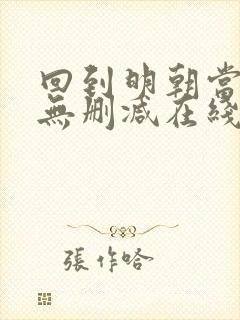 回到明朝當
無刪減在綫
張作哈